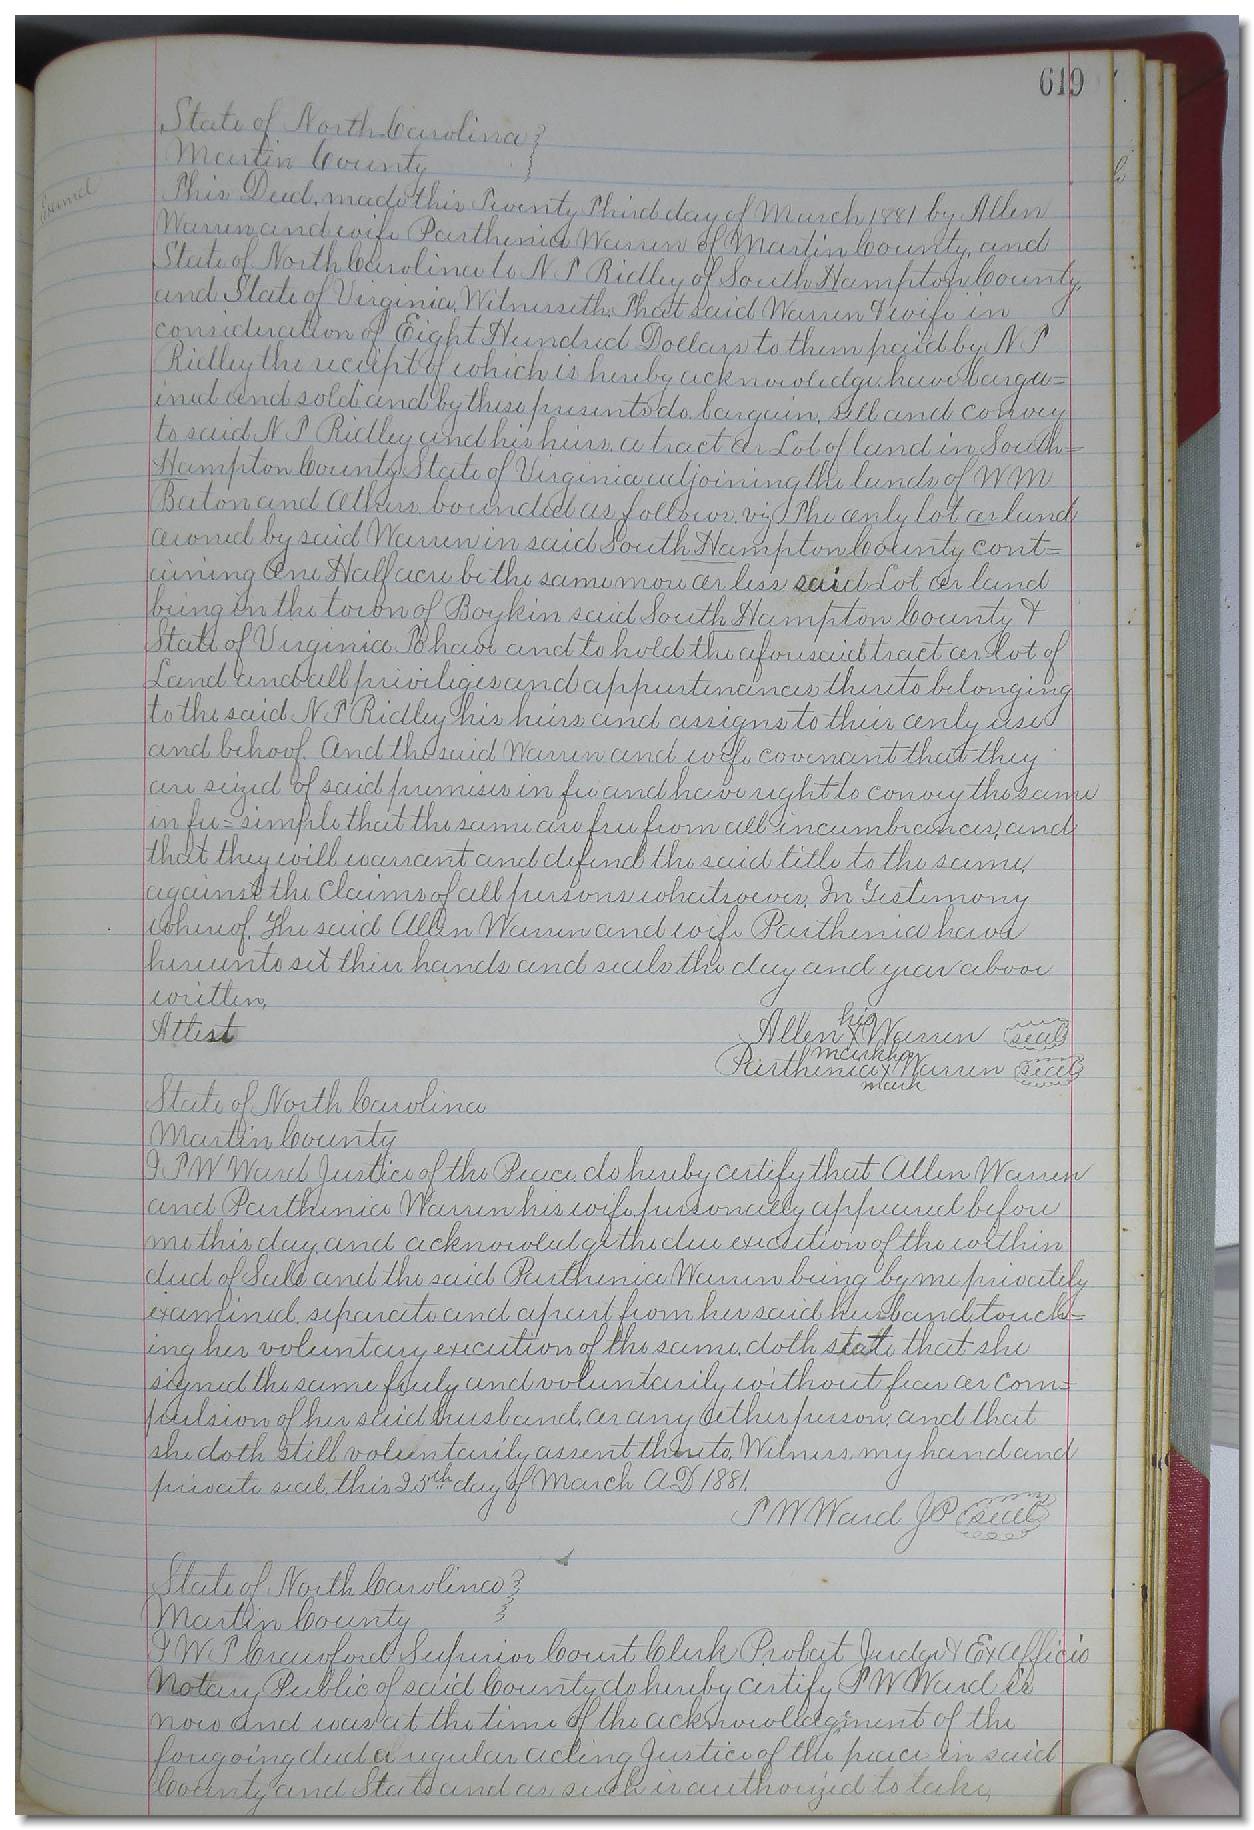 619
State of North Carolina
Martin County
Examd
This Deed, made this Twenty Third day of March 1881 by Allen
Warren and wife Parthenia Warren of Martin County, and
State of North Carolina to N T Ridley of South Hampton County,
and State of Virginia, Witnesseth, That said Warren & wife in
consideration of Eight Hundred Dollars to them paid by N T
Ridley the receipt of which is hereby acknowledge, have barga=
ined and sold and by these presents do bargain, sell and convey
to said N T Ridley and his heirs, a tract or Lot of land in South=
Hampton County State of Virginia adjoining the lands of W M
Beaton and others, bounded as follows. viz The only lot or land
owned by said Warren in said South Hampton County cont=
aining One Half acre be the same more or less said Lot or land
being in the town of Boykin said South Hampton County &
State of Virginia To have and to hold the aforesaid tract or lot of
Land and all priviliges and appurtenances thereto belonging
to the said N T Ridley his heirs and assigns to their only use
and behoof. And the said Warren and wife covenant that they
are seized of said premises in fee and have right to convey the same
in fee=simple that the same are free from all incumbrances, and
that they will warrant and defend the said title to the same,
against the claims of all persons whatsoever. In Testimony
whereof, The said Allen Warren and wife Parthenia have
hereunto set their hands and seals the day and year above
written,
Attest
his
Allen X Warren seal
mark her
Parthenia X Warren seal
mark
State of North Carolina
Martin County
I T W Ward Justice of the Peace do hereby certify that Allen Warren
and Parthenia Warren his wife personally appeared before
me this day and acknowledge the due execution of the within
deed of Sale and the said Parthenia Warren being by me privately
examined, separate and apart from her said husband touch=
ing her voluntary execution of the same, doth state that she
signed the same freely and voluntarily without fear or com=
pulsion of her said husband, or any other person, and that
she doth still voluntarily assent thereto, Witness, my hand and
private seal, this 25th day of March A D 1881.
T W Ward J P seal
State of North Carolina
Martin County
I W T Crawford Superior Court Clerk Probat Judge & Exofficio
Notary Public of said County do hereby certify T W Ward is
now and was at the time of the acknowledgment of the
foregoing deed a regular acting Justice of the peace in said
County and State and as such is authorized to take,